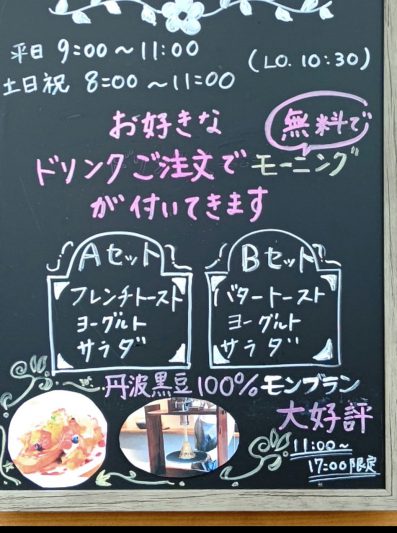 平日 9:00～11:00 (LO. 10:30)
土日祝 8:00～11:00
お好きな 無料で
ドリンクご注文でモーニング
が付いてきます
Aセット
フレンチトースト
ヨーグルト
サラダ
Bセット
バタートースト
ヨーグルト
サラダ
丹波黒豆100%モンブラン
大好評
11:00～
17:00限定